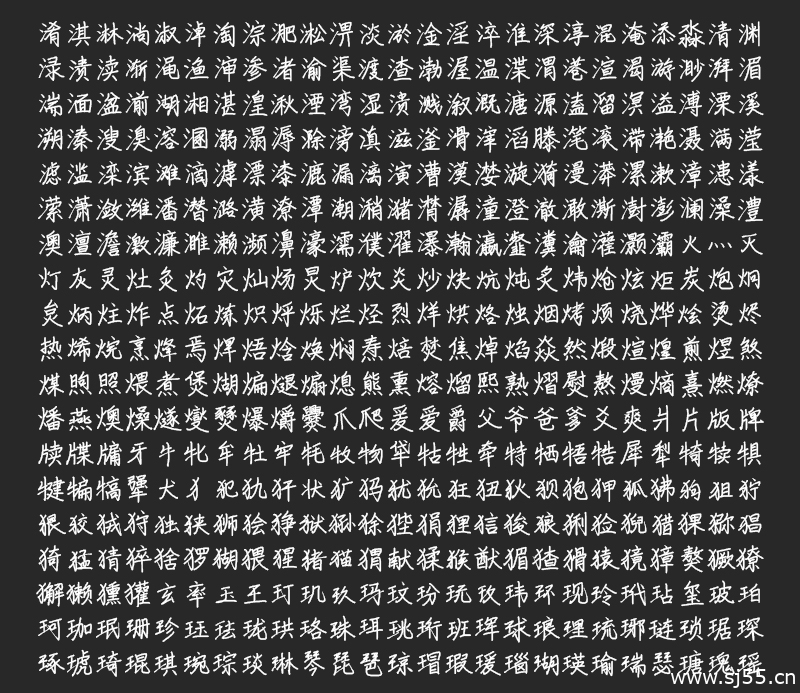 淆淇淋淌淑淖淘淙淝淞淠淡淤淦淫淬淮深淳混淹添淼清渊
渌渍渎渐渑渔渖渗渚渝渠渡渣渤渥温渫渭港渲渴游渺湃湄
湍湎湓湔湖湘湛湟湫湮湾湿溃溅溆溉溏源溘溜溟溢溥溧溪
溯溱溲溴溶溷溺溻溽滁滂滇滋滏滑滓滔滕滗滚滞滟滠满滢
滤滥滦滨滩滴滹漂漆漉漏漓演漕漠漤漩漪漫漭漯漱漳漶漾
潆潇潋潍潘潜潞潢潦潭潮潲潴潸潺潼澄澈澉澌澍澎澜澡澧
澳澶澹激濂濉濑濒濞濠濡濮濯瀑瀚瀛瀣瀵瀹灌灏灞火灬灭
灯灰灵灶灸灼灾灿炀炅炉炊炎炒炔炕炖炙炜炝炫炬炭炮炯
炱炳炷炸点炻炼炽烀烁烂烃烈烊烘烙烛烟烤烦烧烨烩烫烬
热烯烷烹烽焉焊焐焓焕焖焘焙焚焦焯焰焱然煅煊煌煎煜煞
煤煦照煨煮煲煳煸煺煽熄熊熏熔熘熙熟熠熨熬熳熵熹燃燎
燔燕燠燥燧燮燹爆爝爨爪爬爰爱爵父爷爸爹爻爽爿片版牌
牍牒牖牙牛牝牟牡牢牦牧物牮牯牲牵特牺牾牿犀犁犄犊犋
犍犏犒犟犬犭犯犰犴状犷犸犹狁狂狃狄狈狍狎狐狒狗狙狞
狠狡狨狩独狭狮狯狰狱狲狳狴狷狸狺狻狼猁猃猊猎猓猕猖
猗猛猜猝猞猡猢猥猩猪猫猬献猱猴猷猸猹猾猿獍獐獒獗獠
獬獭獯獾玄率玉王玎玑玖玛玟玢玩玫玮环现玲玳玷玺玻珀
珂珈珉珊珍珏珐珑珙珞珠珥珧珩班珲球琅理琉琊琏琐琚琛
琢琥琦琨琪琬琮琰琳琴琵琶琼瑁瑕瑗瑙瑚瑛瑜瑞瑟瑭瑰瑶
www.sj55.cn